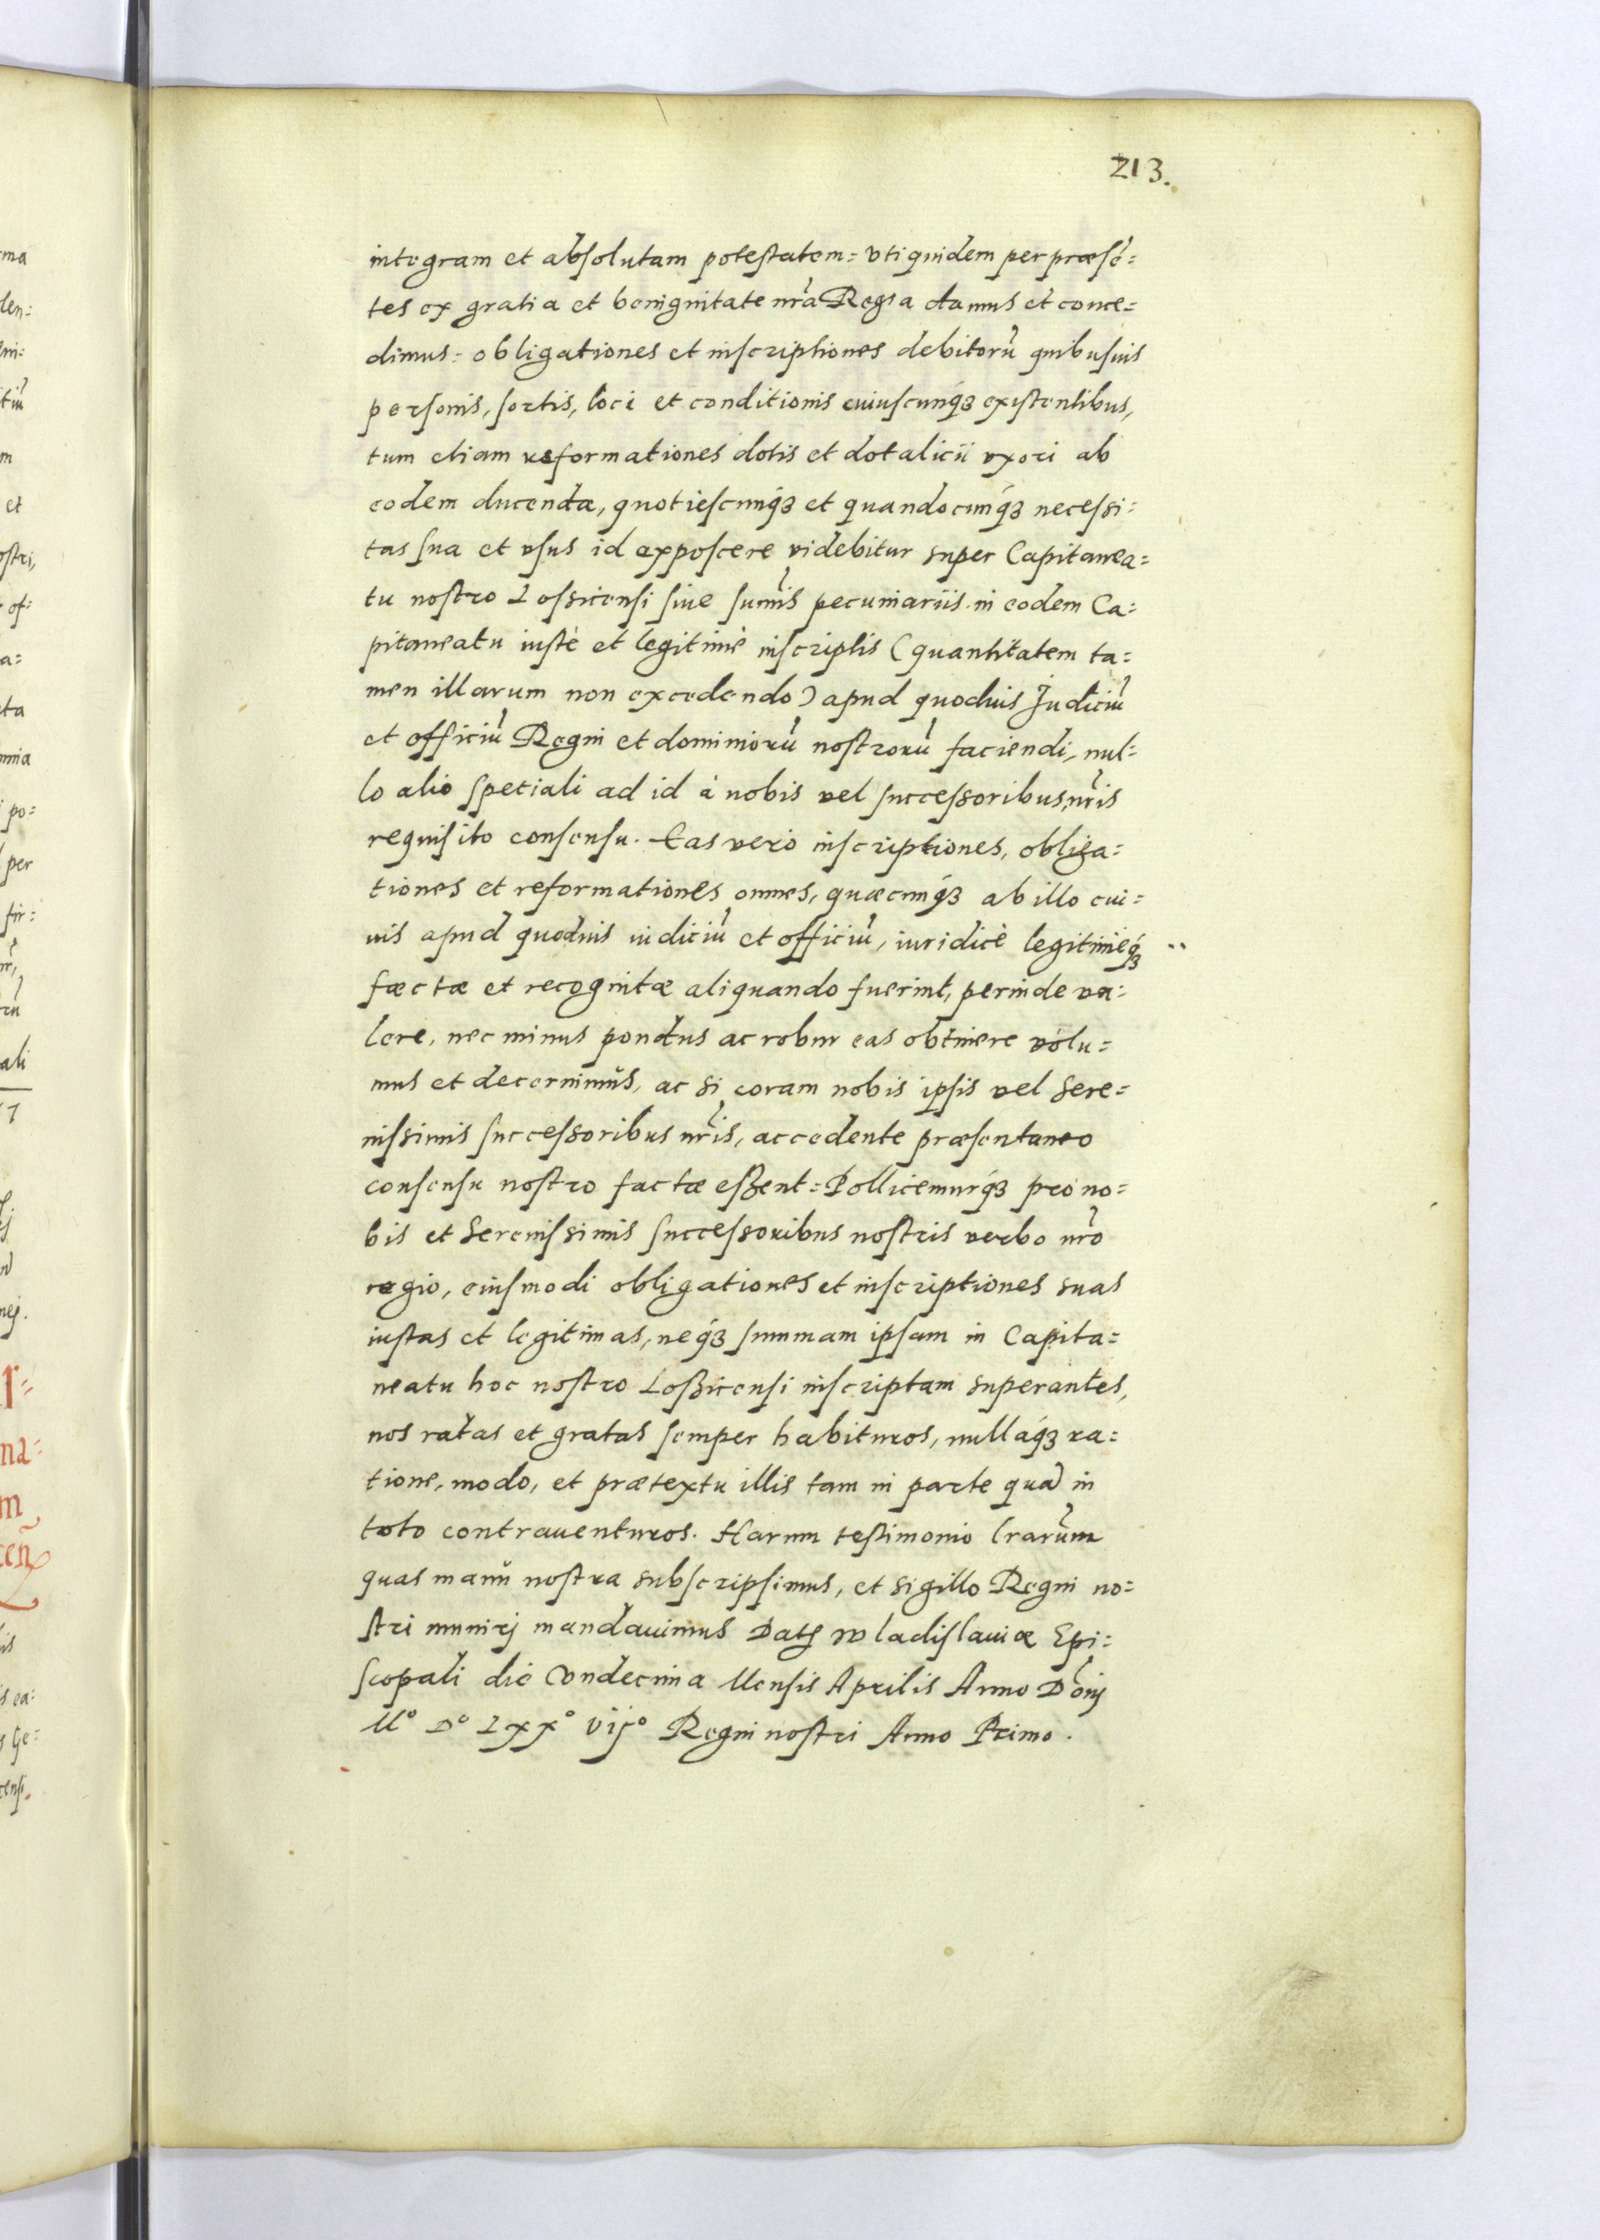 213.
integram et absolutam potestatem= vti quidem per præsē=
tes ex gratia et benignitate nrã Regia damus et conce=
dimus= obligationes et inscriptiones debitorũ quibusuis
personis, sortis, loci et conditionis cuiuscunq́ꝫ existentibus,
tum etiam reformationes dotis et dotalicii vxori ab
eodem ducendæ, quotiescunq́ꝫ et quandocunq́ꝫ necessi=
tas sua et vsus id exposcere videbitur super Capitanea=
tu nostro Lossicensi siue sum̃is pecuniariis in eodem Ca=
pitaneatu iustè et legitimè inscriptis (quantitatem ta=
men illarum non excedendo) apud quoduis Judiciũ
et officiũ Regni et dominiorũ nostrorũ faciendi, nul=
lo alio speciali ad id à nobis vel successoribus nr̃is
requisito consensu. Eas verò inscriptiones, obliga=
tiones et reformationes omnes, quæcunq́ꝫ ab illo cui=
uis apud quoduis iudiciũ et officiũ, iuridicè legitimeq́ꝫ
factæ et recognitæ aliquando fuerint, perinde va=
lere, nec minus pondus ac robur eas obtinere volu=
mus et decernimus, ac si coram nobis ipsis vel Sere=
nissimis successoribus nr̃is, accedente præsentaneo
consensu nostro factæ eßent= Pollicemurq́ꝫ pro no=
bis et Serenissimis successoribus nostris verbo nr̃o
regio, eiusmodi obligationes et inscriptiones suas
iustas et legitimas, neq́ꝫ summam ipsam in Capita=
neatu hoc nostro Loßicensi inscriptam superantes,
nos ratas et gratas semper habituros, nullaq́ꝫ ra=
tione, modo, et prætextu illis tam in parte quã in
toto contrauenturos. Harum testimonio lrãrum
quas manũ nostra subscripsimus, et sigillo Regni no=
stri munirj mandauimus Datꝭ Wladislauiæ Epi=
scopali die Vndecima Mensis Aprilis Anno Dõnj
Mº Dº Lxxº vijº Regni nostri Anno Primo.